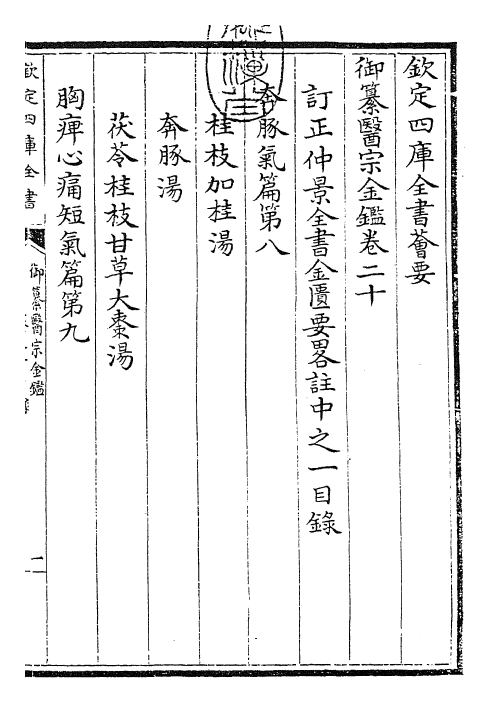 欽定四庫全書薈要
御纂醫宗金鑑卷二十
訂正仲景全書金匱要畧註中之一目錄
奔豚氣篇第八
桂枝加桂湯
奔豚湯
茯苓桂枝甘草大棗湯
胸痺心痛短氣篇第九
欽定四庫全書
御纂醫宗金鑑
一